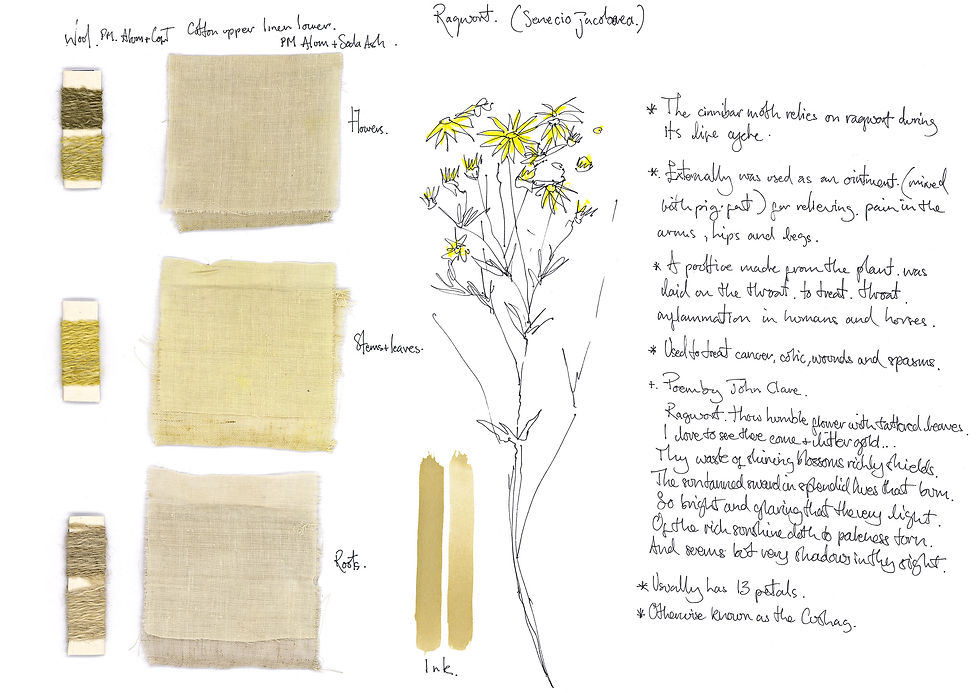 Ragwort. (Senecio jacobaea.)
Wool. PM. Alum + Copt
Cotton upper linen lower.
PM Alum + Soda Ash.
Flowers.
Stems + leaves.
Roots.
Ink.
* The cinnibar moth relies on ragwort during
its life cycle.
*. Externally was used as an ointment. (mixed
with pig. fat) for relieving. pain in the
arms, hips and legs.
* A poltice made from the plant. was
laid on the throat. to treat. throat.
inflammation in humans and horses.
* Used to treat cancer, colic, wounds and spasms.
+. Poem by John Clare.
Ragwort. thou humble flower with tattered leaves.
I love to see thee come + litter gold...
Thy waste of shining blossoms richly shields.
The suntanned sward in splendid hues that burn.
So bright and glaring that the very light.
Of the rich sunshine doth to paleness turn.
And seems but very shadows in thy sight.
* Usually has 13 petals.
* Otherwise known as the Cushag.